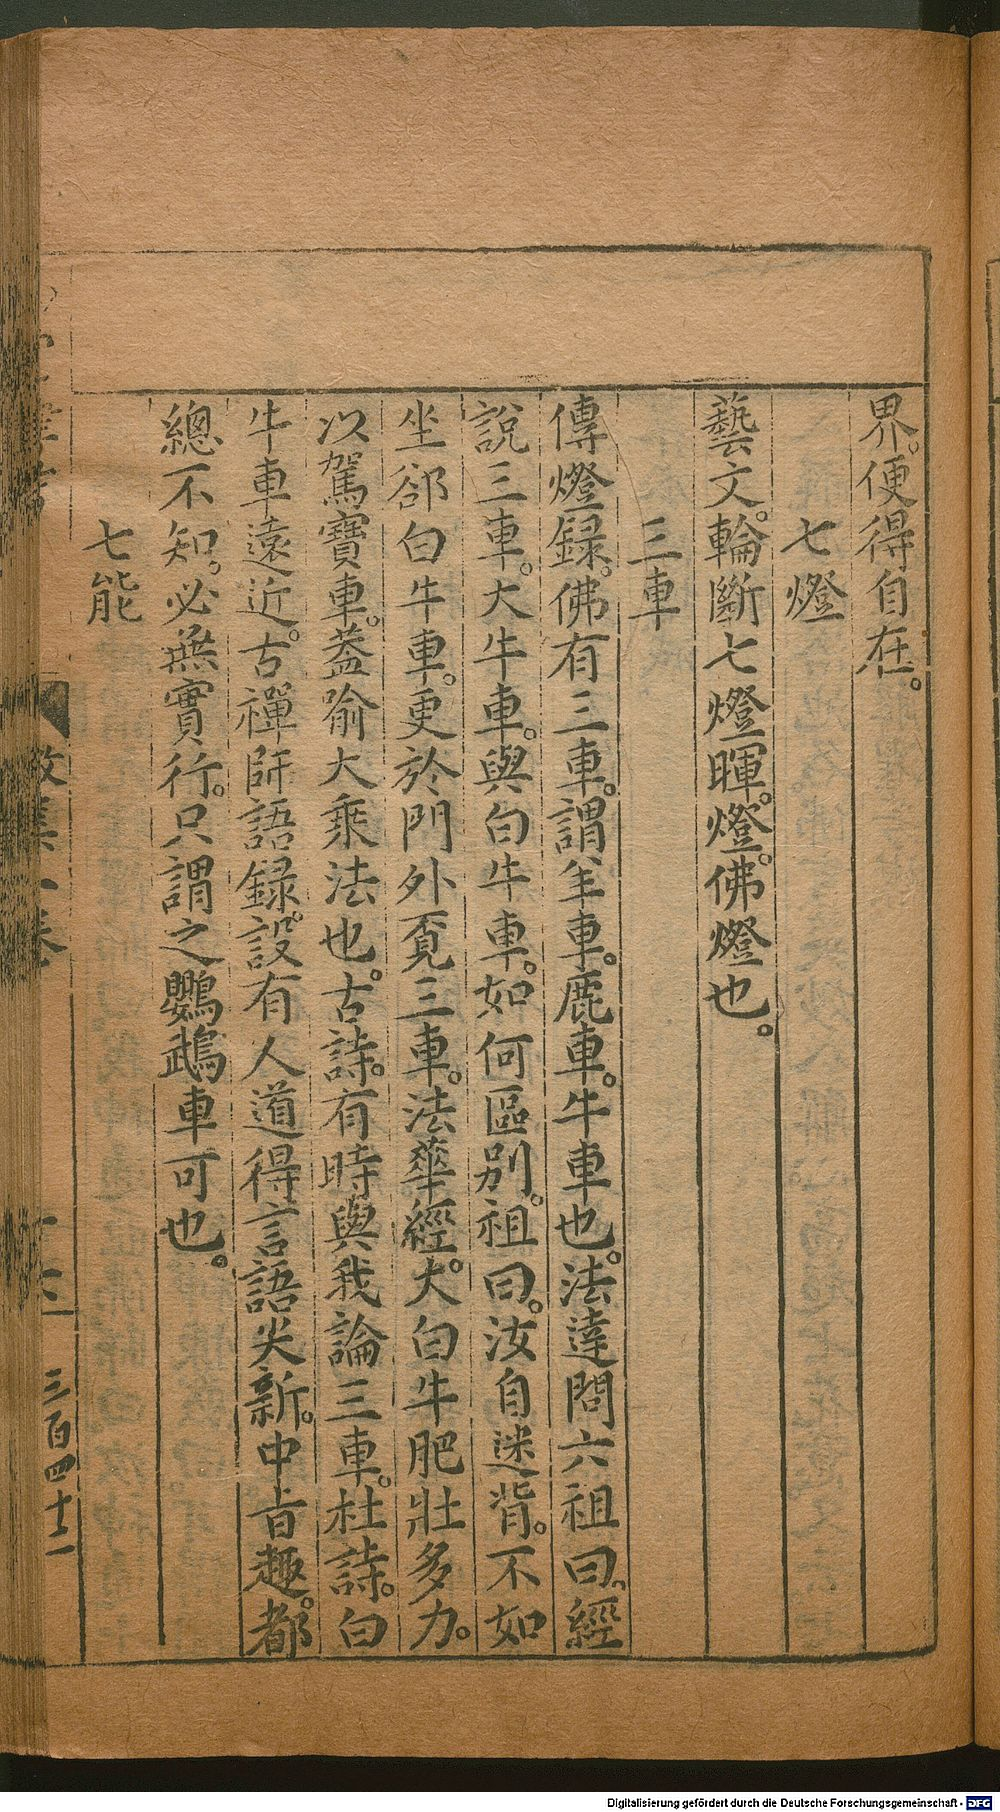 界。便得自在。
七燈
藝文。輪斷七燈暉。燈。佛燈也。
三車
傳燈錄。佛有三車。謂羊車。鹿車。牛車也。法達問六祖曰。經
說三車。大牛車。與白牛車。如何區別。祖曰。汝自迷背。不如
坐郤白牛車。更於門外覔三車。法華經。大白牛肥壯多力。
以駕寶車。葢喻大乘法也。古詩。有時與我論三車。杜詩。白
牛車遠近。古禪師語錄。設有人道得言語尖新。中旨趣。都
總不知。必無實行。只謂之鸚鵡車可也。
七能
三百四十一
Digitalisierung gefördert durch die Deutsche Forschungsgemeinschaft - DFG